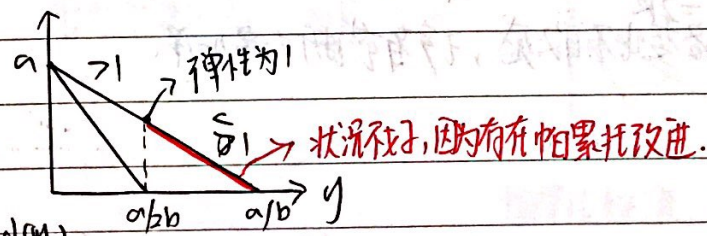 a
>1
弹性为1
<1
状况不好,因为存在帕累托改进.
a/2b
a/b
y